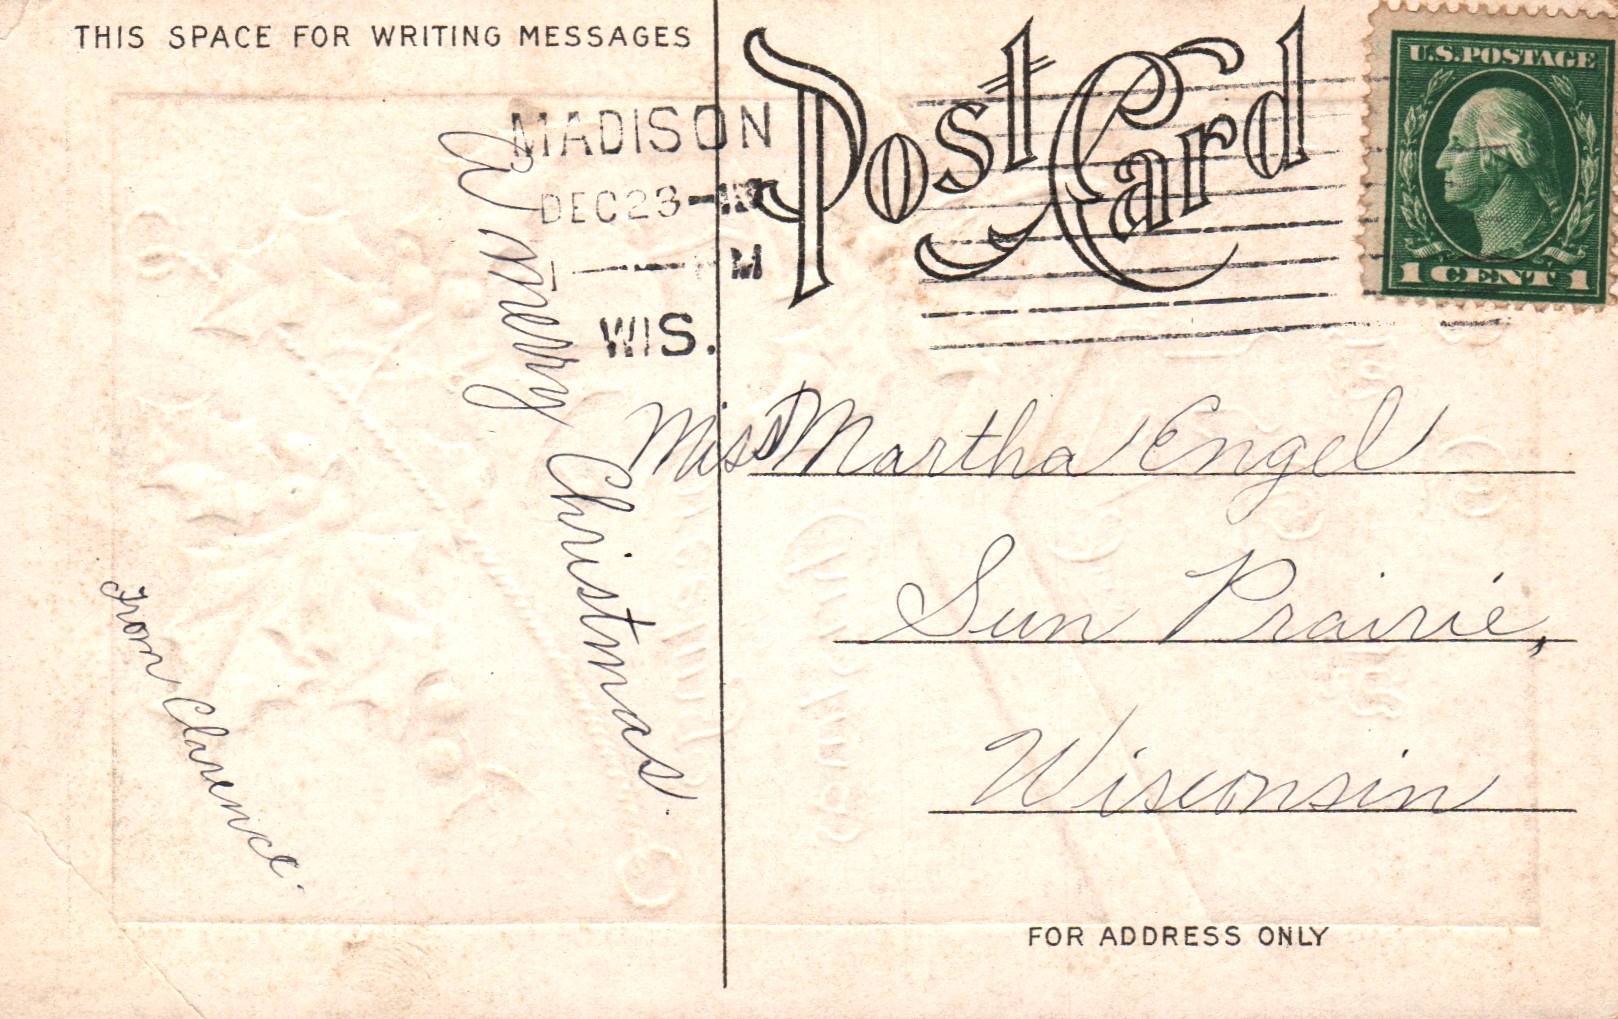 THIS SPACE FOR WRITING MESSAGES
Post Card
U.S. POSTAGE
1 CENT 1
MADISON
DEC 23
M
WIS.
A merry Christmas.
From Clarence.
Miss Martha Engel
Sun Prairie,
Wisconsin
FOR ADDRESS ONLY